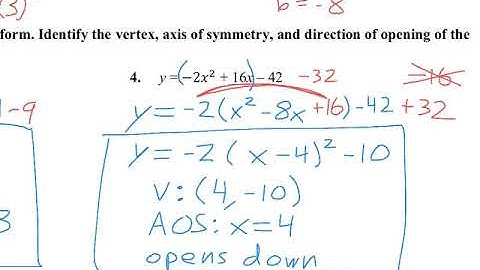 (3)
b = -8
form. Identify the vertex, axis of symmetry, and direction of opening of the
4. y = (-2x² + 16x) - 42 -32 =16
1 -9
y = -2(x² - 8x +16) - 42 + 32
y = -2(x - 4)² - 10
V: (4, -10)
3
AOS: x = 4
opens down